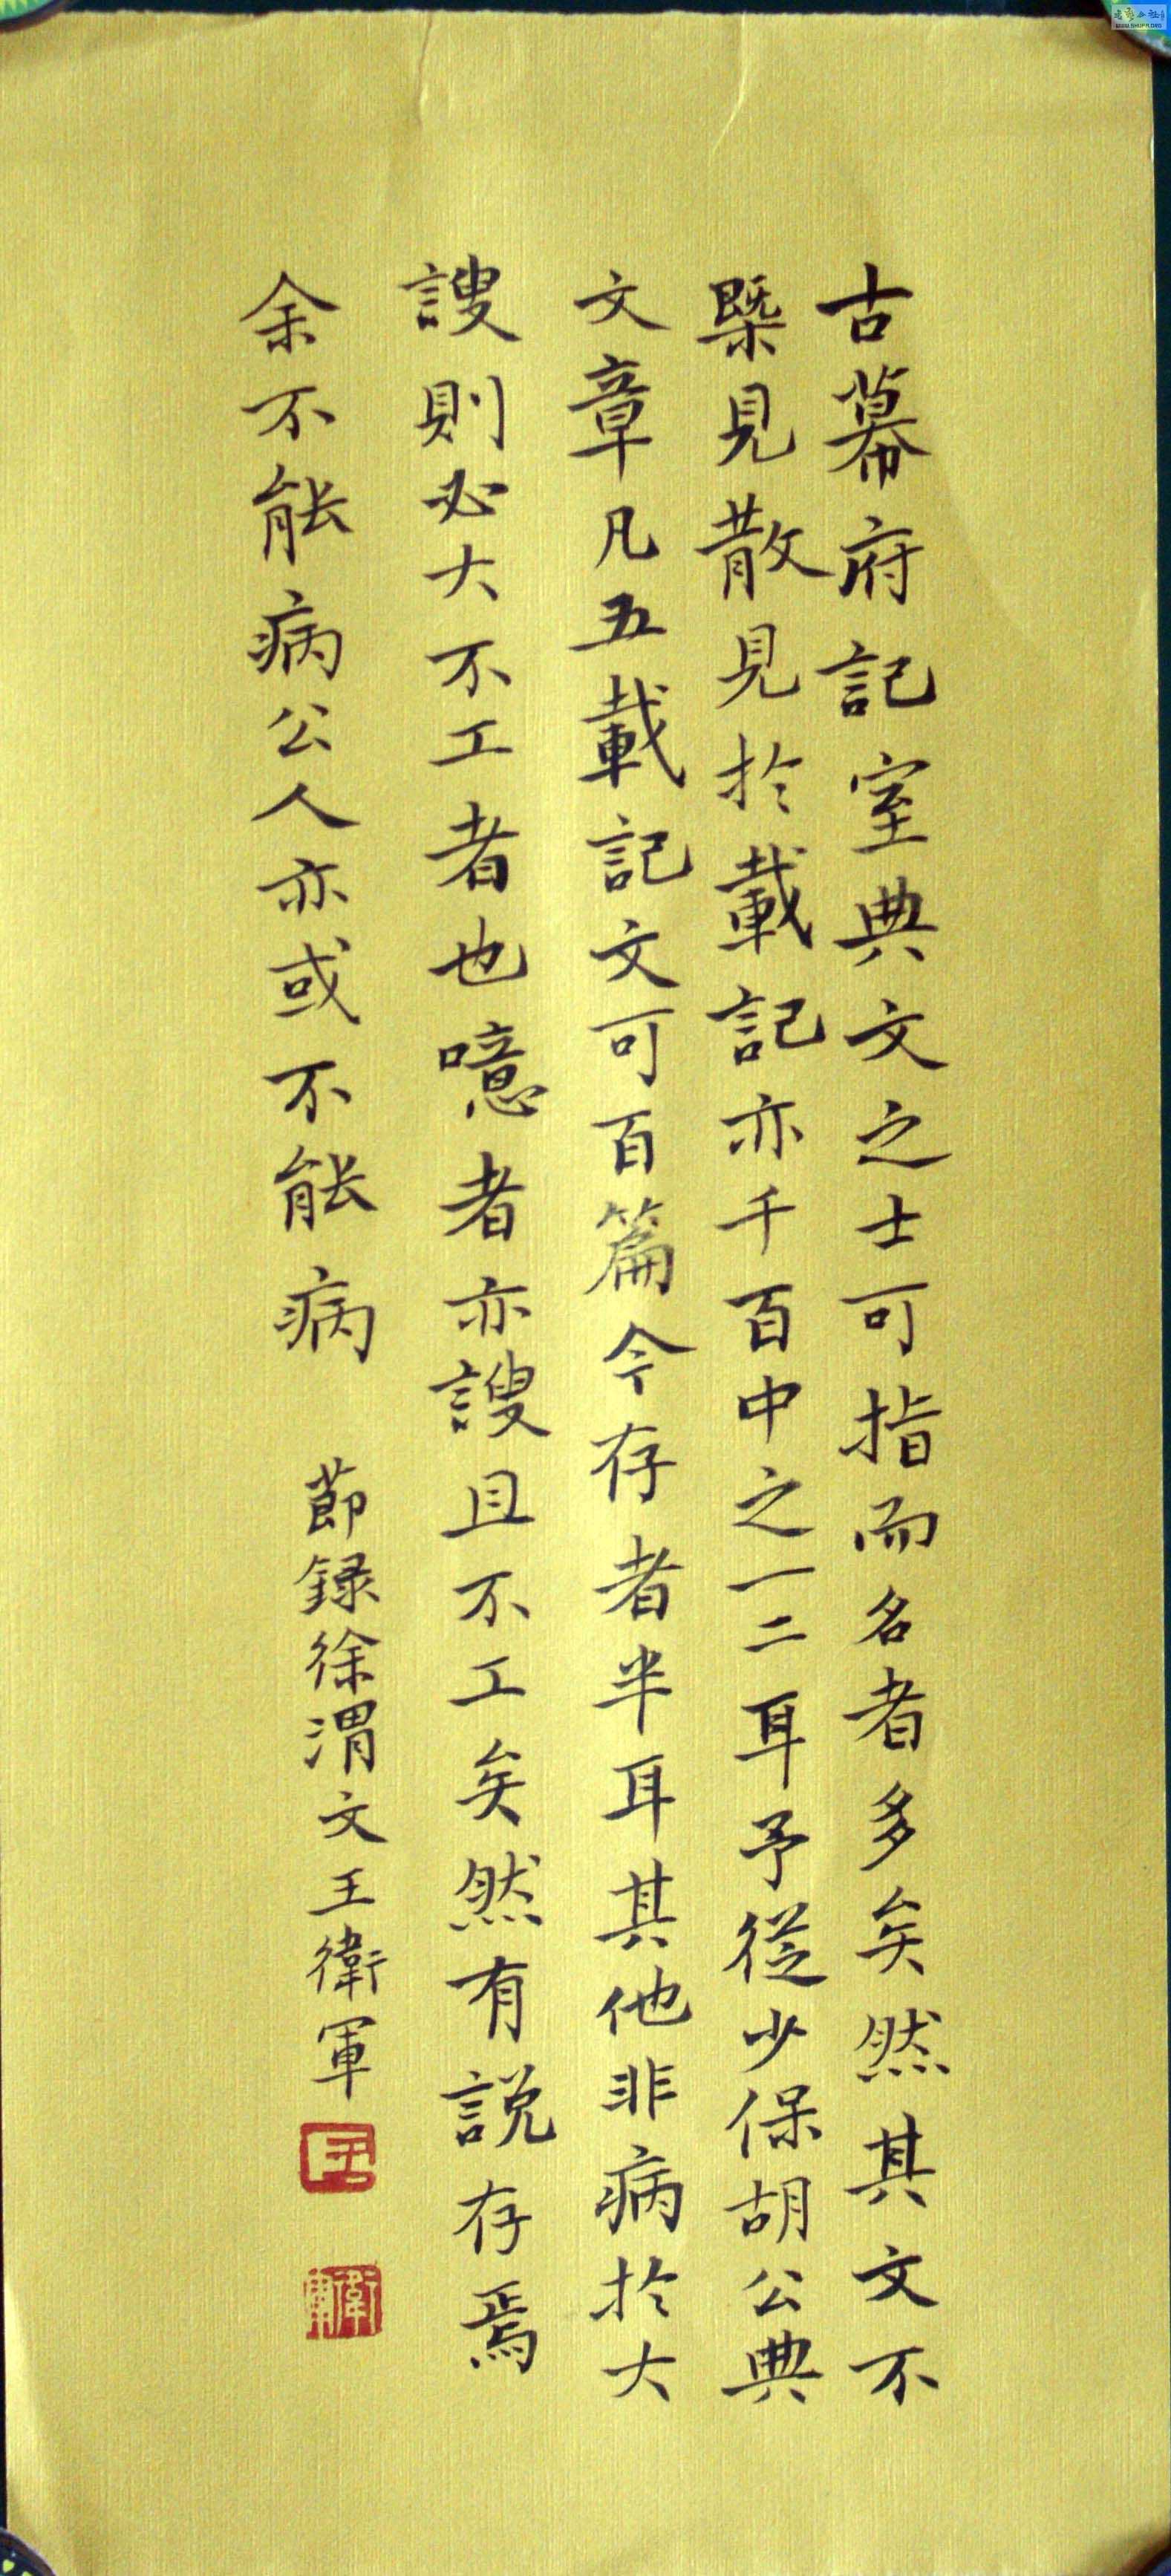 古幕府記室典文之士可指而名者多矣然其文不
槩見散見於載記亦千百中之一二耳予從少保胡公典
文章凡五載記文可百篇今存者半耳其他非病於大
謏則必大不工者也噫者亦謏且不工矣然有説存焉
余不能病公人亦或不能病
節録徐渭文王衛軍
衛軍
WWW.SHUFA.ORG